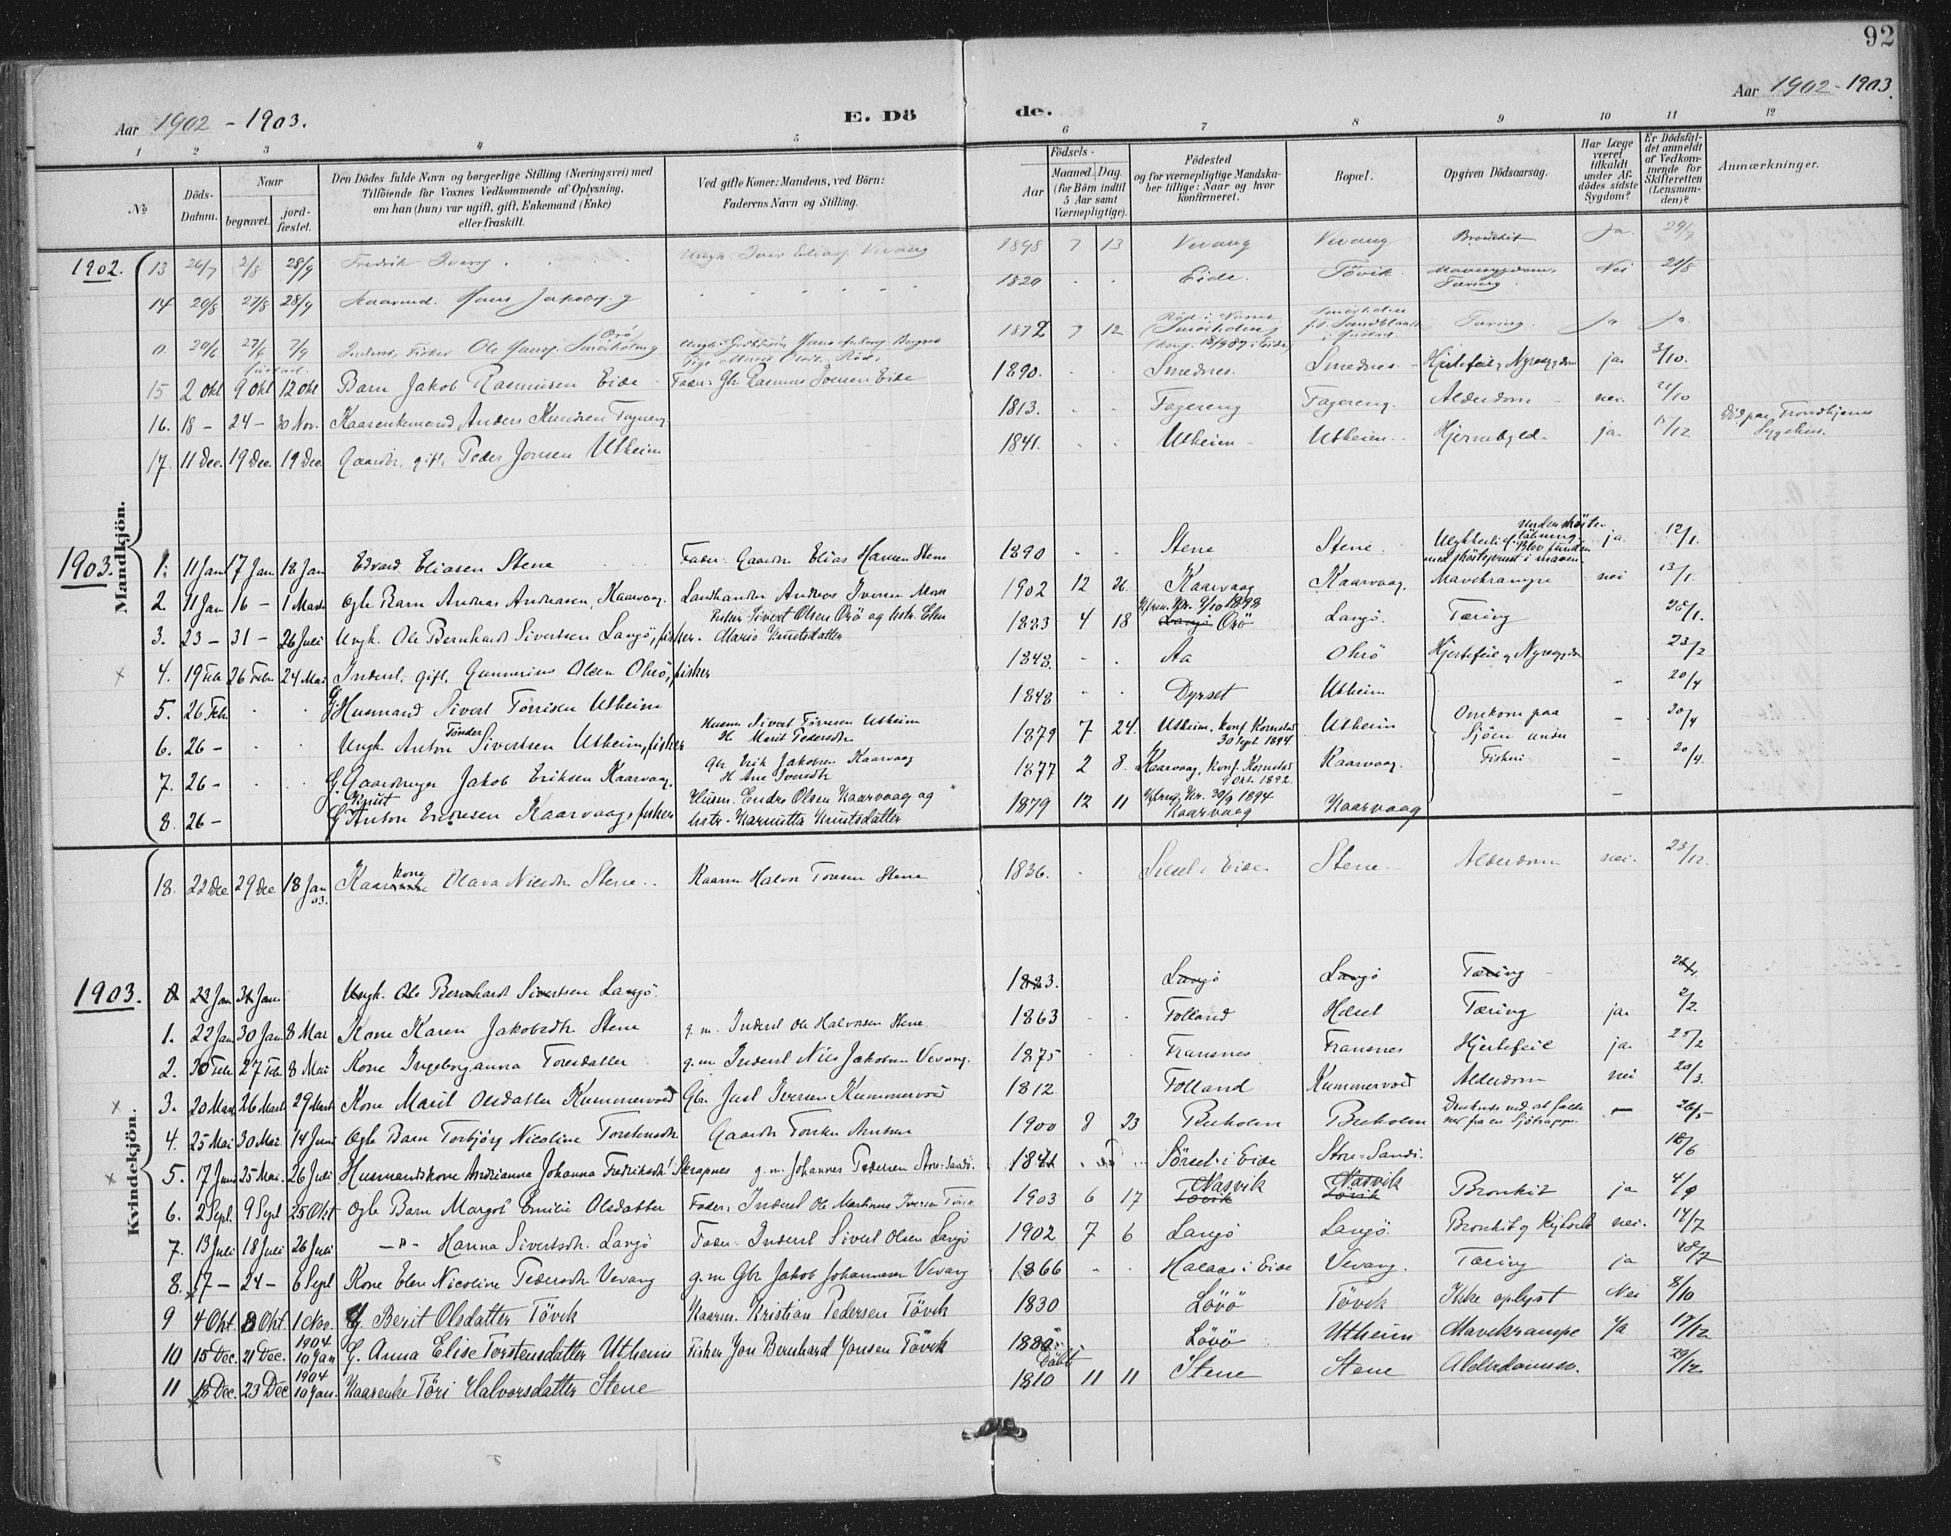 92
Aar 1902 - 1903.
E. Dö
de.
Aar 1902 - 1903.
1 2 3 4 5 6 7 8 9 10 11 12
№
Döds-Datum.
Naar
begravet.
jord-fæstet.
Den Dödes fulde Navn og borgerlige Stilling (Næringsvei) med
Tilföiende for Voxnes Vedkommende af Oplysning,
om han (hun) var ugift, gift, Enkemand (Enke)
eller fraskilt.
Ved gifte Koner: Mandens, ved Börn:
Faderens Navn og Stilling.
Födsels-
Aar
Maaned. Dag.
(for Börn indtil
5 Aar samt
Værnepligtige).
Födested
og for værnepligtige Mandska-
ber tillige: Naar og hvor
konfirmeret.
Bopæl.
Opgiven Dödsaarsag.
Har Læge
været
tilkaldt
under Af-
dödes sidste
Sygdom?
Er Dödsfal-
det anmeldt
af Vedkom-
mende for
Skifteretten
(Lensman-
den)?
Anmærkninger.
Mandkjön.
1902. 13 26/7 2/8 28/9 Fredrik Iversg. Ungk. Iver Eliasg. Vevang 1898 7 13 Vevang Vevang Bronkit Ja 29/7
14 20/8 27/8 28/9 Hans Jakobsg. 1820 Eide. Tövik. Mavesygdom, Tæring. Nei 21/8
0. 20/6 27/6 7/9 Inderst, Fisker Ole Hansg. 1872 7 12 Tæring. Ja Ja.
15 2 Okt 9 Okt 12 Okt Barn Jakob Rasmusen Eide Fader: Gbr. Rasmus Eide 1890. Smednes. Smednes. Hjertefeil & Nyresygdom ja. 3/10.
16. 18 - 24 - 30 Nov. Kaarenkemand Anders Knudsen Fagereng 1813. Fagereng Fagereng. Alderdom nei. 22/10
17. 11 Dec. 19 Dec. 19 Dec Gaardbr. gift. Peder Jonsen Utheim 1841. Utheim Utheim Hjernebyld. ja. 17/12 Död paa Trondhjems Sygehus.
1903. 1. 11 Jan 17 Jan 18 Jan Edvard Eliasen Stene Fader: Gaardbr. Elias Hansen Stene 1890 Stene Stene. ja. 12/1.
2 11 Jan 16 - 1 Marts Ogte Barn Andreas Andreasen, Kaarvaag. Landhandler Andreas Iversen Moss 1902 12 26. Kaarvaag Kaarvaag. Mavekrampe nei 13/1.
3. 23 - 31 - 26 Juli Ungk. Ole Bernhard Sivertsen Langö, fisker. Fisker Sivert Olsen Orö og hstr. Ellen Marie Knutsdatter 1883 4 18 Kfrm. Kr. 9/10 1898 Langö Orö Langö. Tæring 26/1.
4. 19 Feb 26 Febr. 24 Mai Inderst, gift. Gunnerius Olsen Ohrö, fisker 1848. Aa Ohrö Hjertefeil & Nyresygdom 23/2
5. 26 Feb. G. Husmand Sivert Törrisen Utheim 1848 Dyrset Utheim - 20/4
6. 26 - Ungk. Anton Tönder Sivertsen Utheim, fisker Husm. Sivert Törresen Utheim H. Marit Pedersdtr 1879 7 24. Utheim. Konf. Kornstad 30 Sept. 1894 Utheim Omkom paa Sjöen under Fiskeri - 20/4
7. 26 - G. Gaardbruger Jakob Eriksen Kaarvaag Gbr. Erik Jakobsen Kaarvaag H. Ane Iversdtr 1877 2 8. Kaarvaag, Konf. Kornstad 9 Okt. 1892. Kaarvaag. - 20/4.
8. 26 - G. Anton Knut Endresen Kaarvaag, fisker Husm. Endre Olsen Kaarvaag og hstr. Marautta Knutsdatter 1879 12 11 Kfrm. Kr. 30/9 1894. Kaarvaag Kaarvaag -
Kvindekjön.
18. 22 Dec 29 Dec 18 Jan 03. Kaarkone Olava Nilsdtr Stene. Kaarm. Halvor Toresen Stene 1836. Silset i Eide Stene. Alderdom nei. 23/12.
1903. 0. 22 Jan 31 Jan Ungk. Ole Bernhardt Sivertsen Langö. 1883. Langö Langö Tæring
1. 22 Jan 30 Jan 8 Mar Kone Karen Jakobsdtr Stene g. m. Inderst Ole Halvorsen Stene. 1863 Folland Hæset Tæring ja. 2/2.
2. Feb 27 Feb 8 Mar Kone Ingeborganna Toresdatter g. m. Inderst Nils Jakobsen Vevang. 1875 Fransnes Fransnes Hjertefeil ja. 25/2
3. 20 Mars 26 Marts 29 Marts Kone Marit Olsdatter Kummervold Gbr. Just Iversen Kummervold 1812 Folland Kummervold Alderdom nei 20/3.
4. 25 Mai 30 Mai. 14 Juni Ogte Barn Torbjörg Nicoline Torstensdtr Gaardbr Torsten Arntsen 1900 8 23 Druknede ved at falde ned fra en Sjötrappe. - 26/5
5. 17 Juni 25 Mai. 26 Juli Husmandskone Andrianna Johanna Fredriksdtr Skrapnes g. m. Johannes Pedersen Store-Sandö. Sörset i Eide Store-Sandö. 18/6
6. 2 Sept. 9 Sept 25 Okt Ogte Barn Margot Emilie Olsdatter Fader: Inderst Ole Martinus Iversen Tövik 1903 6 17 Tövik Nasvik Tövik Nasvik Bronkit ja 4/9
7. 13 Juli 18 Juli 26 Juli -"- Hanna Sivertsdtr. Langö Fader: Inderst Sivert Olsen Langö 1902 7 6 Langö Langö. Bronkit og Kighoste nei. 14/7
8. 17 - 24 - 6 Sept Kone Elen Nicoline Pedersdtr Vevang g. m. Gbr Jakob Johannesen Vevang 1866 Halaas i Eide Vevang. Tæring ja 18/7
9 4 Okt. 8 Okt. 1 Nov. G. Berit Olsdatter Tövik Kaarm. Kristian Pedersen Tövik 1830 Lövö Tövik Ikke oplyst Nei 8/10
10 15 Dec. 21 Dec. 1904 10 Jan G. Anna Elise Torstensdatter Utheim Fisker Jon Bernhard Jonsen Tövik 1880 Lövö Utheim Mavekrampe Ja 17/12
11 18 Dec. 23 Dec 1904 10 Jan. Kaarenke Töri Halvorsdatter Stene Döbt 1810 11 11 Stene Stene Alderdomssv. 29/12